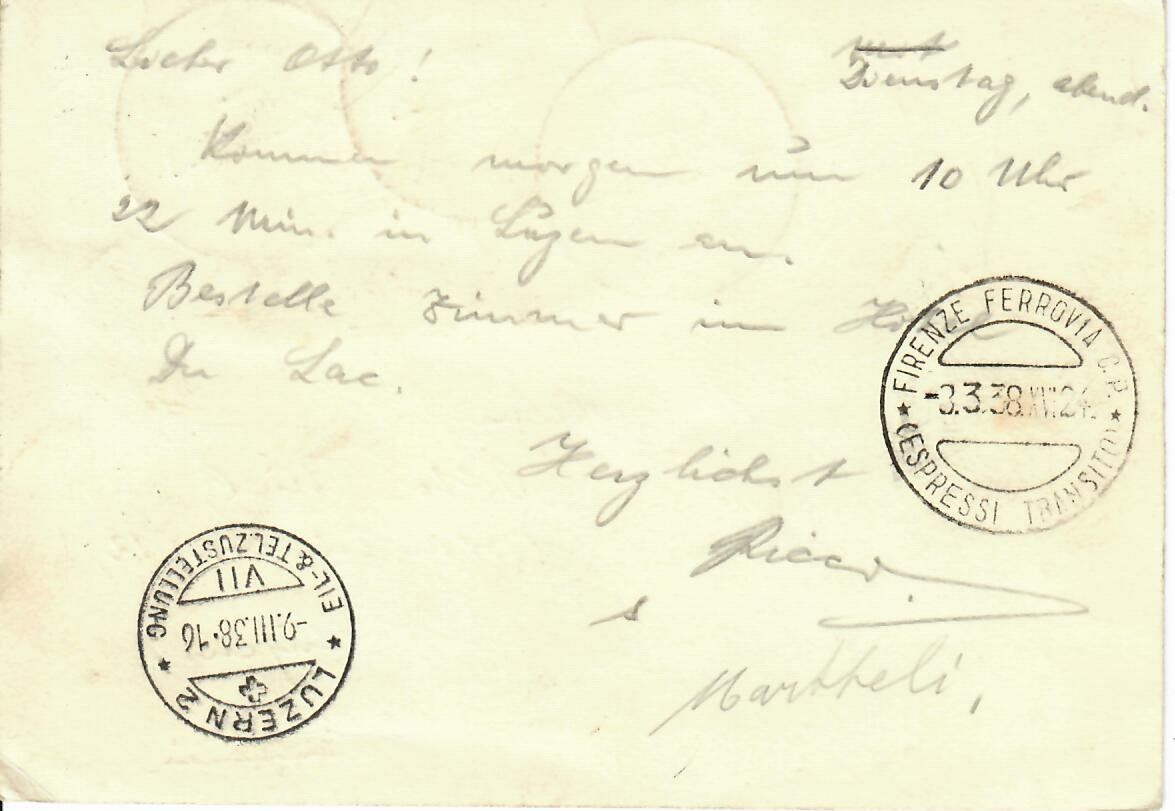 Lieber Otto!
Dienstag, abend.
Kommen morgen um 10 Uhr
22 Min. in Luzern an.
Bestelle Zimmer im Hotel
Du Lac.
Herzlichst
FIRENZE FERROVIA C.P.
-3.3.38.XVI.24
(ESPRESSI TRANSITO)
Ricco
&
Martheli,
EIL- & TEL.ZUSTELLUNG
VII
-9.III.38-16
LUZERN 2